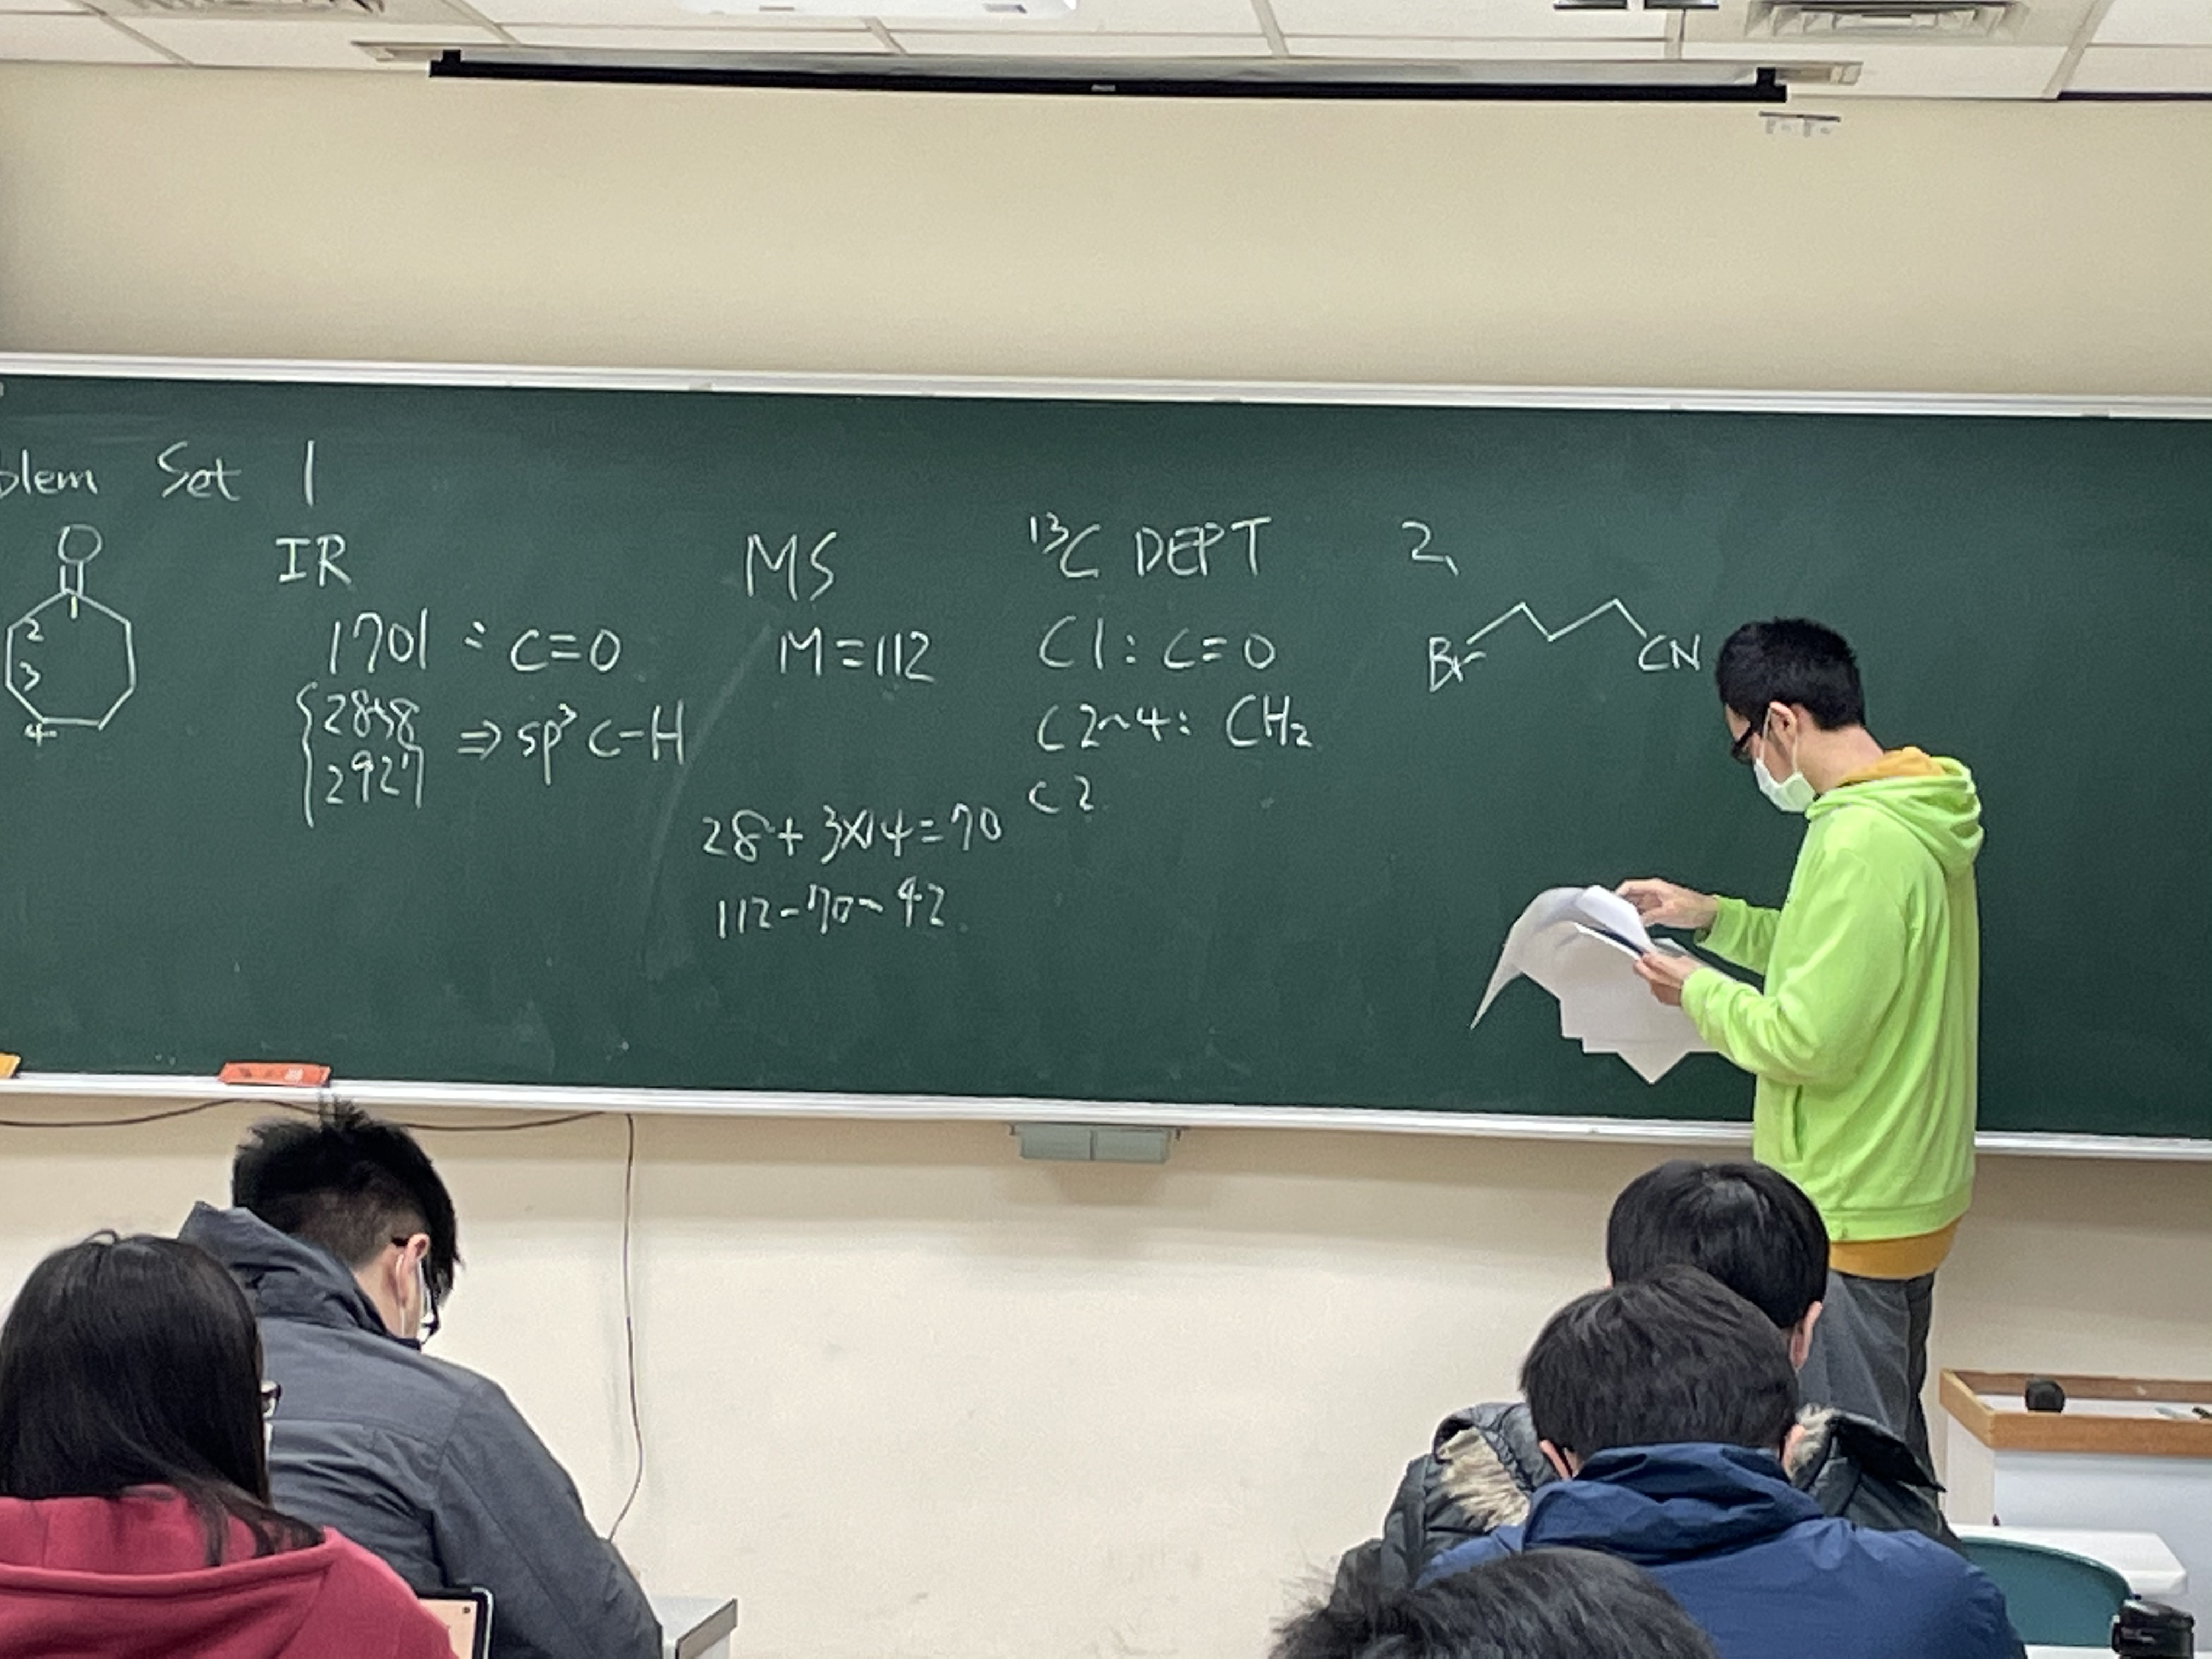 blem Set 1
O
1
2
3
4
IR
1701 : C=O
2858
2927
⇒ sp³ C-H
MS
M=112
28+3×14=70
112-70-42
¹³C DEPT
C1: C=O
C2~4: CH₂
C2
2、
Br
CN